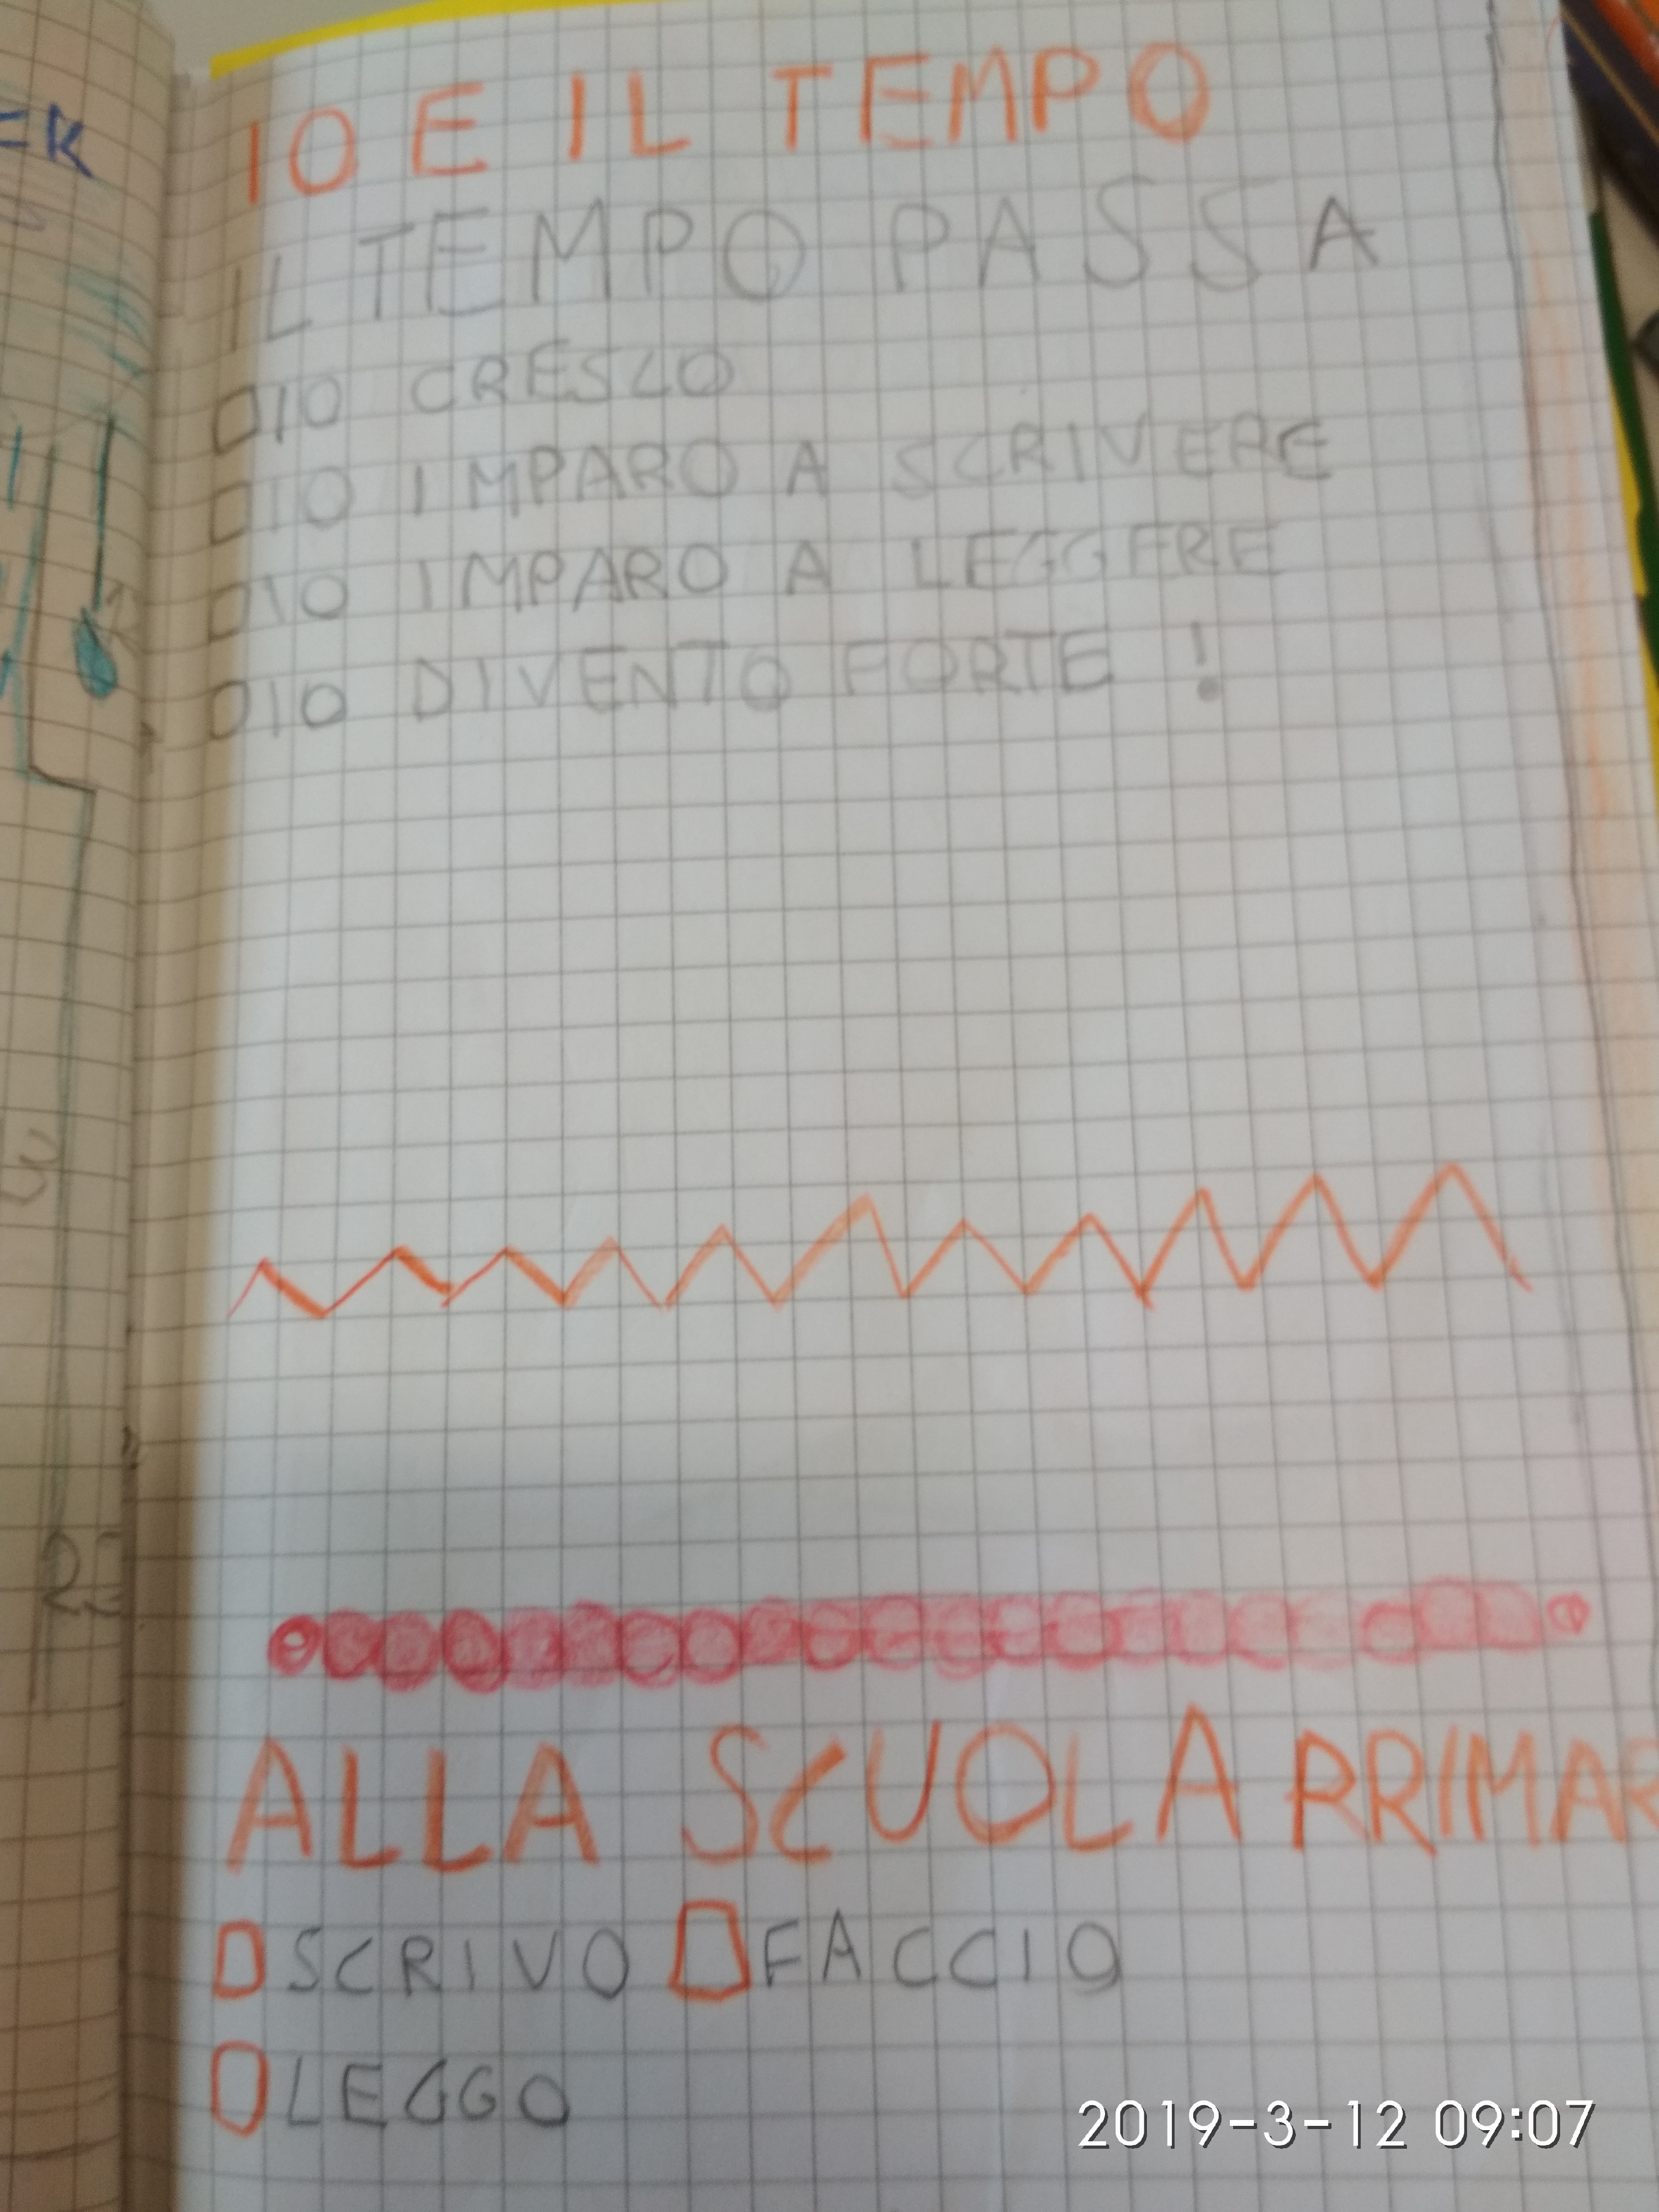 IO E IL TEMPO
IL TEMPO PASSA
IO CRESCO
IO IMPARO A SCRIVERE
IO IMPARO A LEGGERE
IO DIVENTO FORTE !
ALLA SCUOLA PRIMAR
SCRIVO FACCIO
LEGGO
2019-3-12 09:07